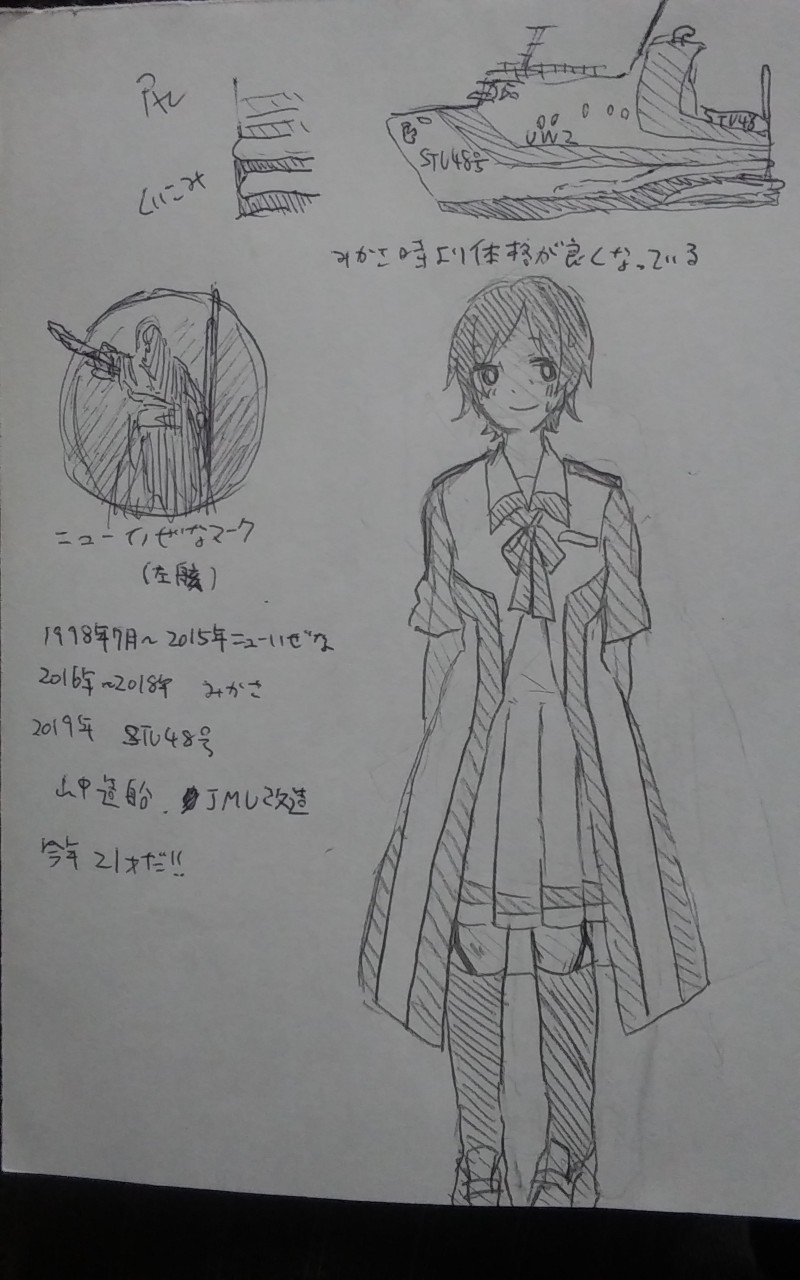 STU48
UW2
STU48号
くいこみ
みかさ時より体格が良くなっている
ニューイゼなマーク
(左舷)
1998年7月～2015年ニューいぜな
2016年～2018年 みかさ
2019年 STU48号
山中造船、JMU改造
今年21才だ!!